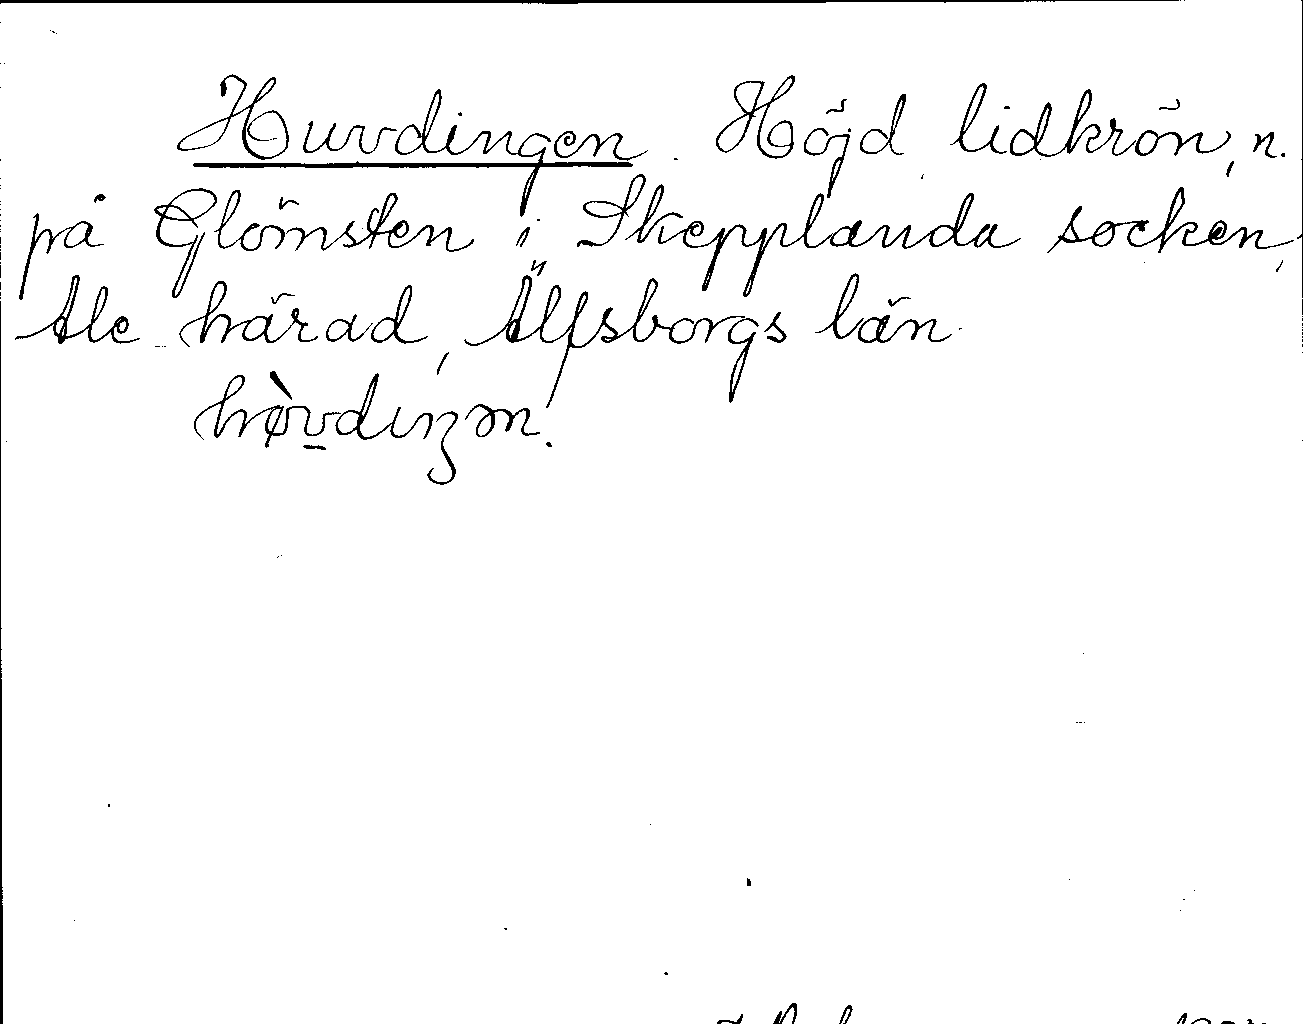 Huvdingen. Höjd lidkrön, n.
på Glömsten i Skepplanda socken,
Ale härad, Älfsborgs län.
hø̀vdiŋən.